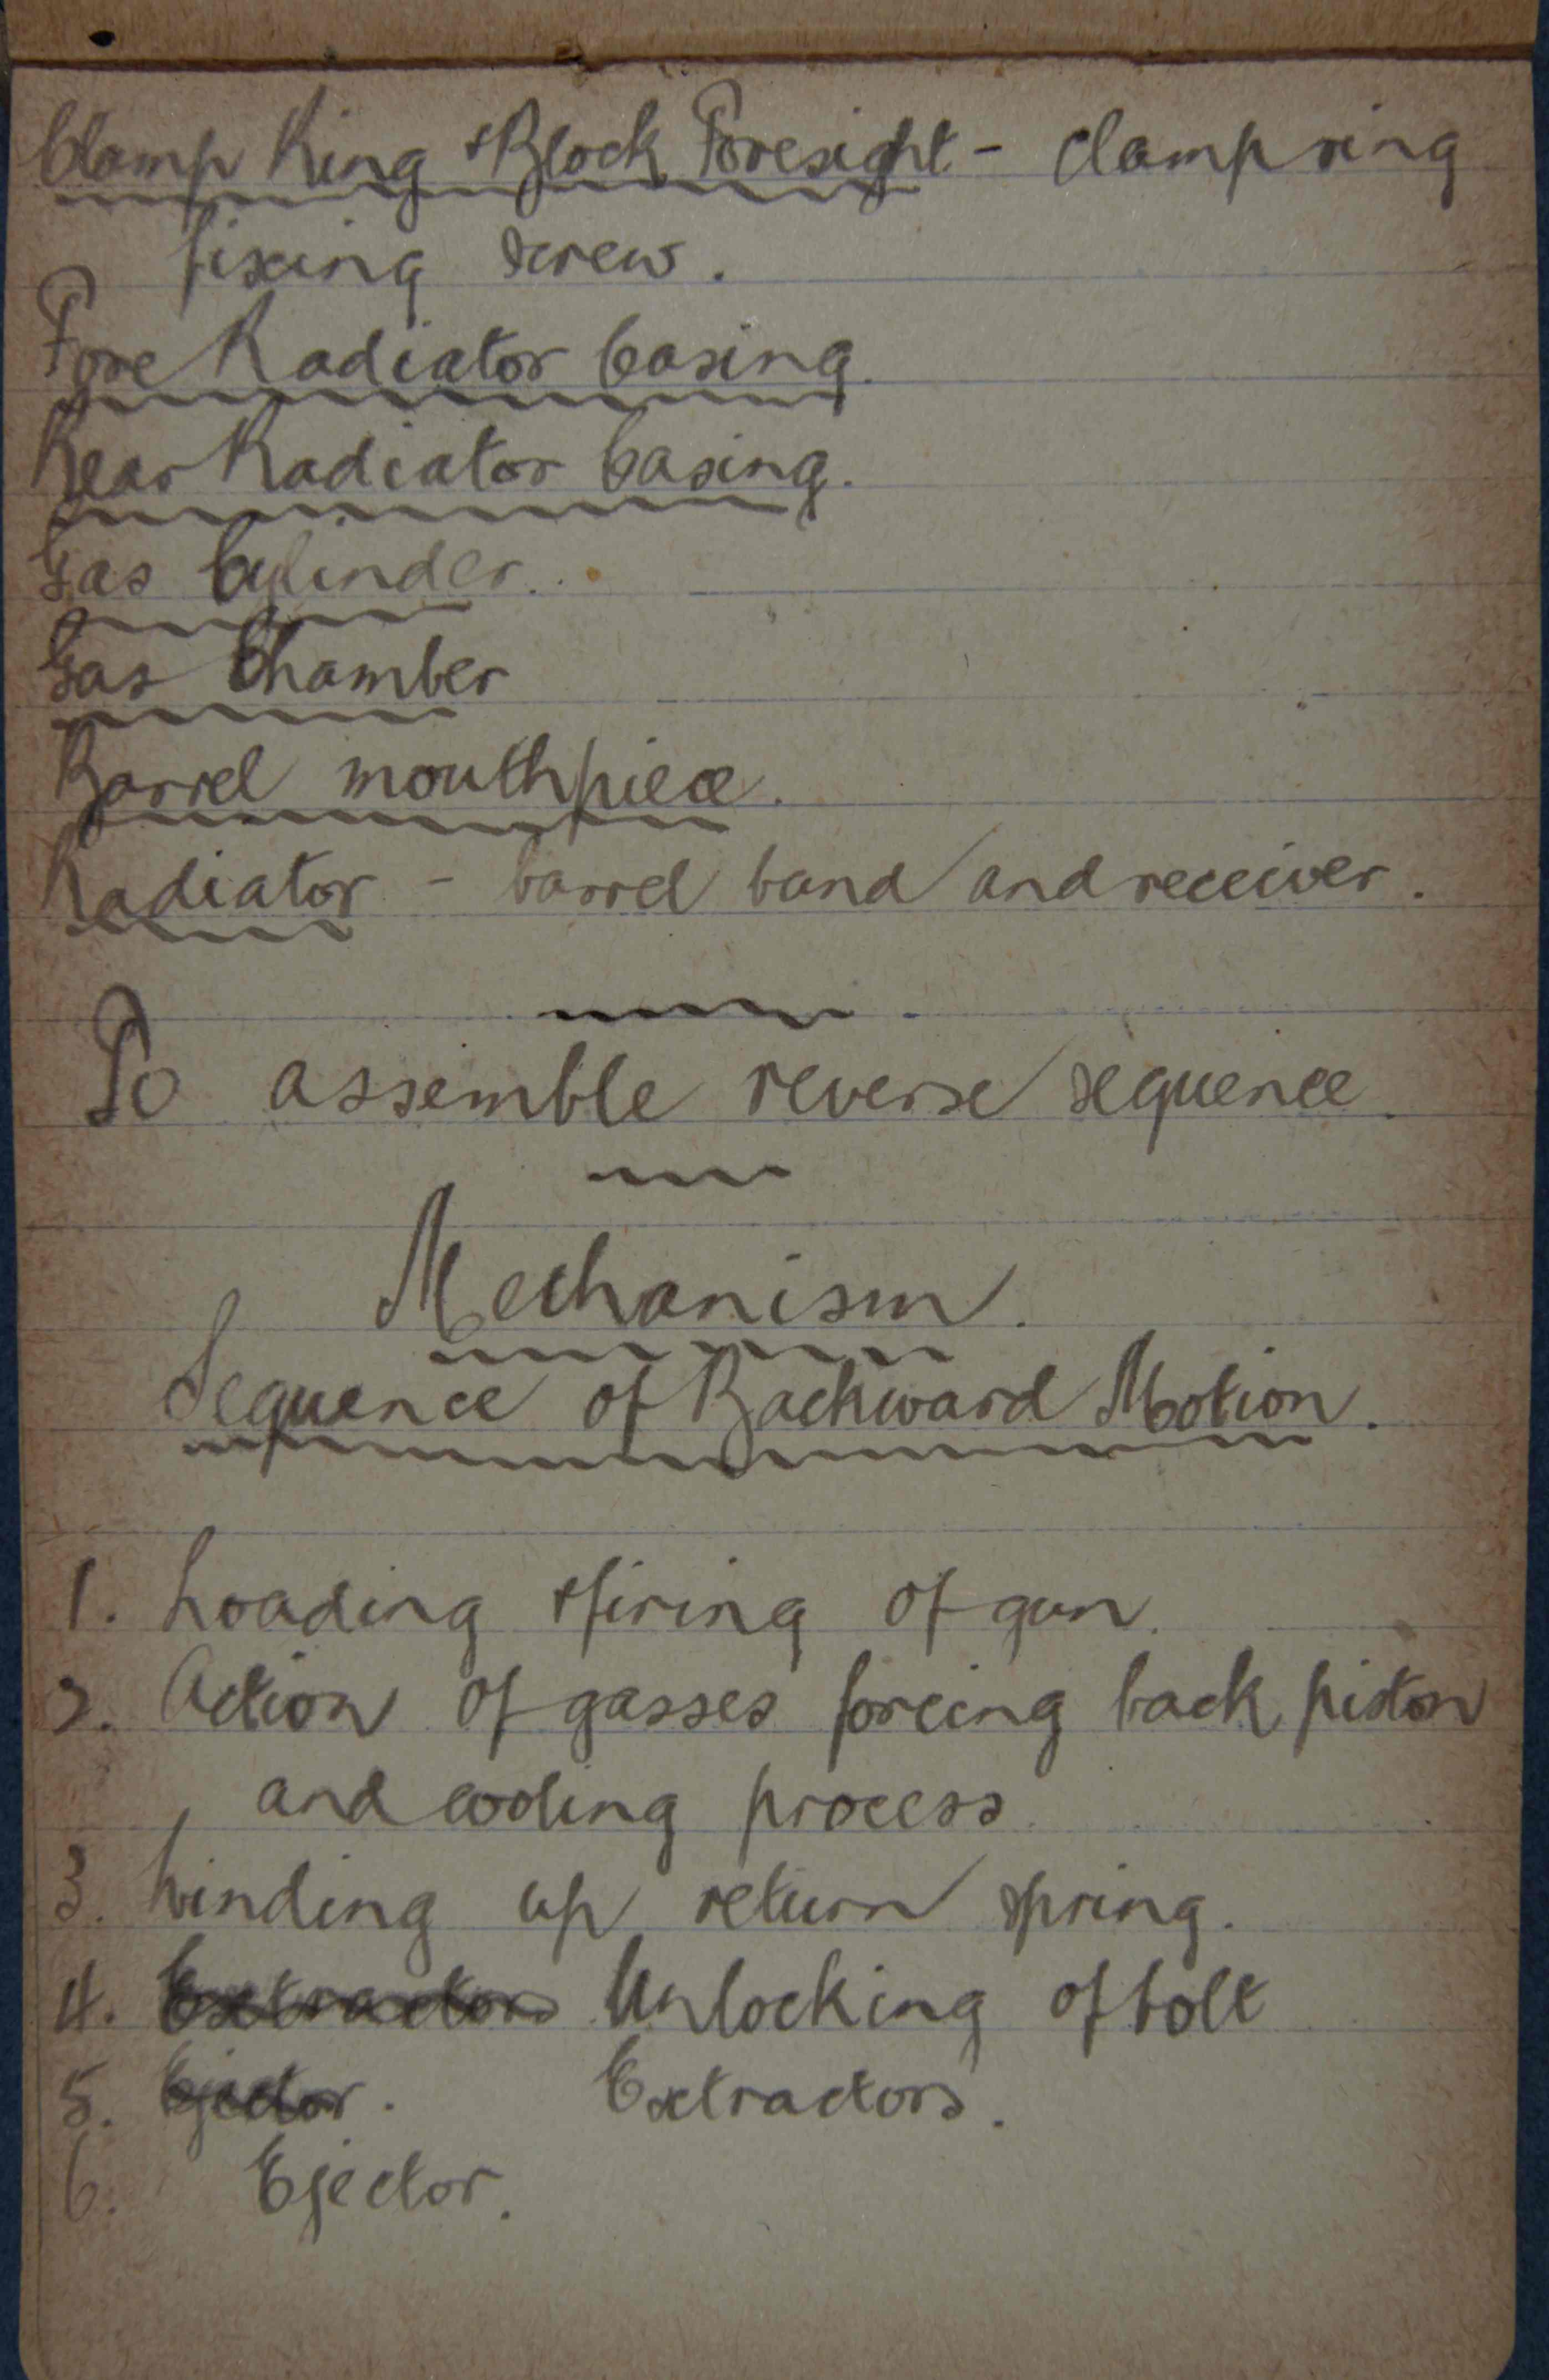 Clamp Ring + Block Foresight - clamp ring
fixing screw.
Fore Radiator Casing.
Rear Radiator Casing.
Gas Cylinder.
Gas Chamber
Barrel mouthpiece.
Radiator - barrel band and receiver.
To assemble reverse sequence.
Mechanism.
Sequence of Backward Motion.
1. Loading + firing of gun.
2. Action of gasses forcing back piston
and cooling process.
3. Winding up return spring.
4. Extractors Unlocking of bolt
5. Ejector. Extractors.
6. Ejector.